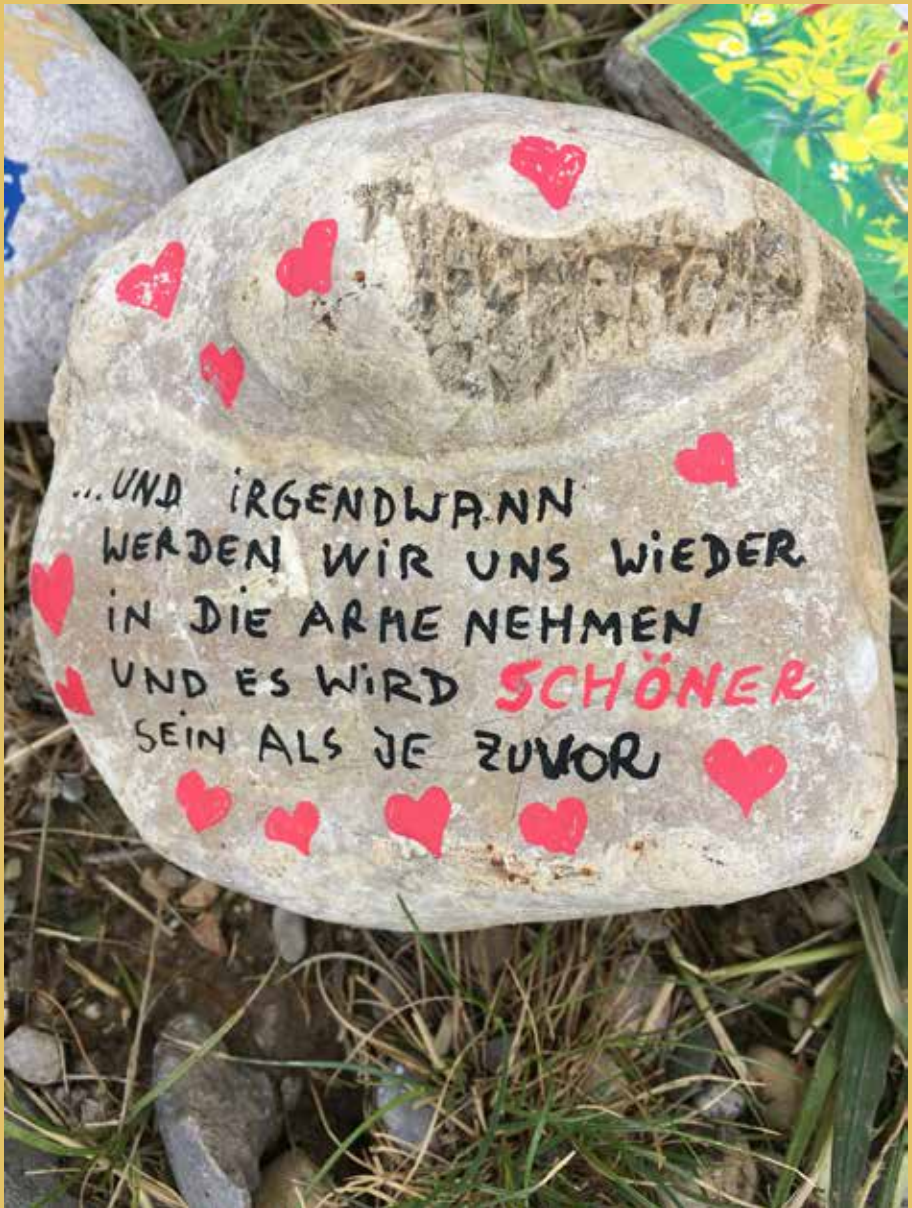 ...UND iRGENDWANN
WERDEN WiR UNS WiEDER
iN DiE ARME NEHMEN
UND ES WiRD SCHÖNER
SEiN ALS JE ZUVOR